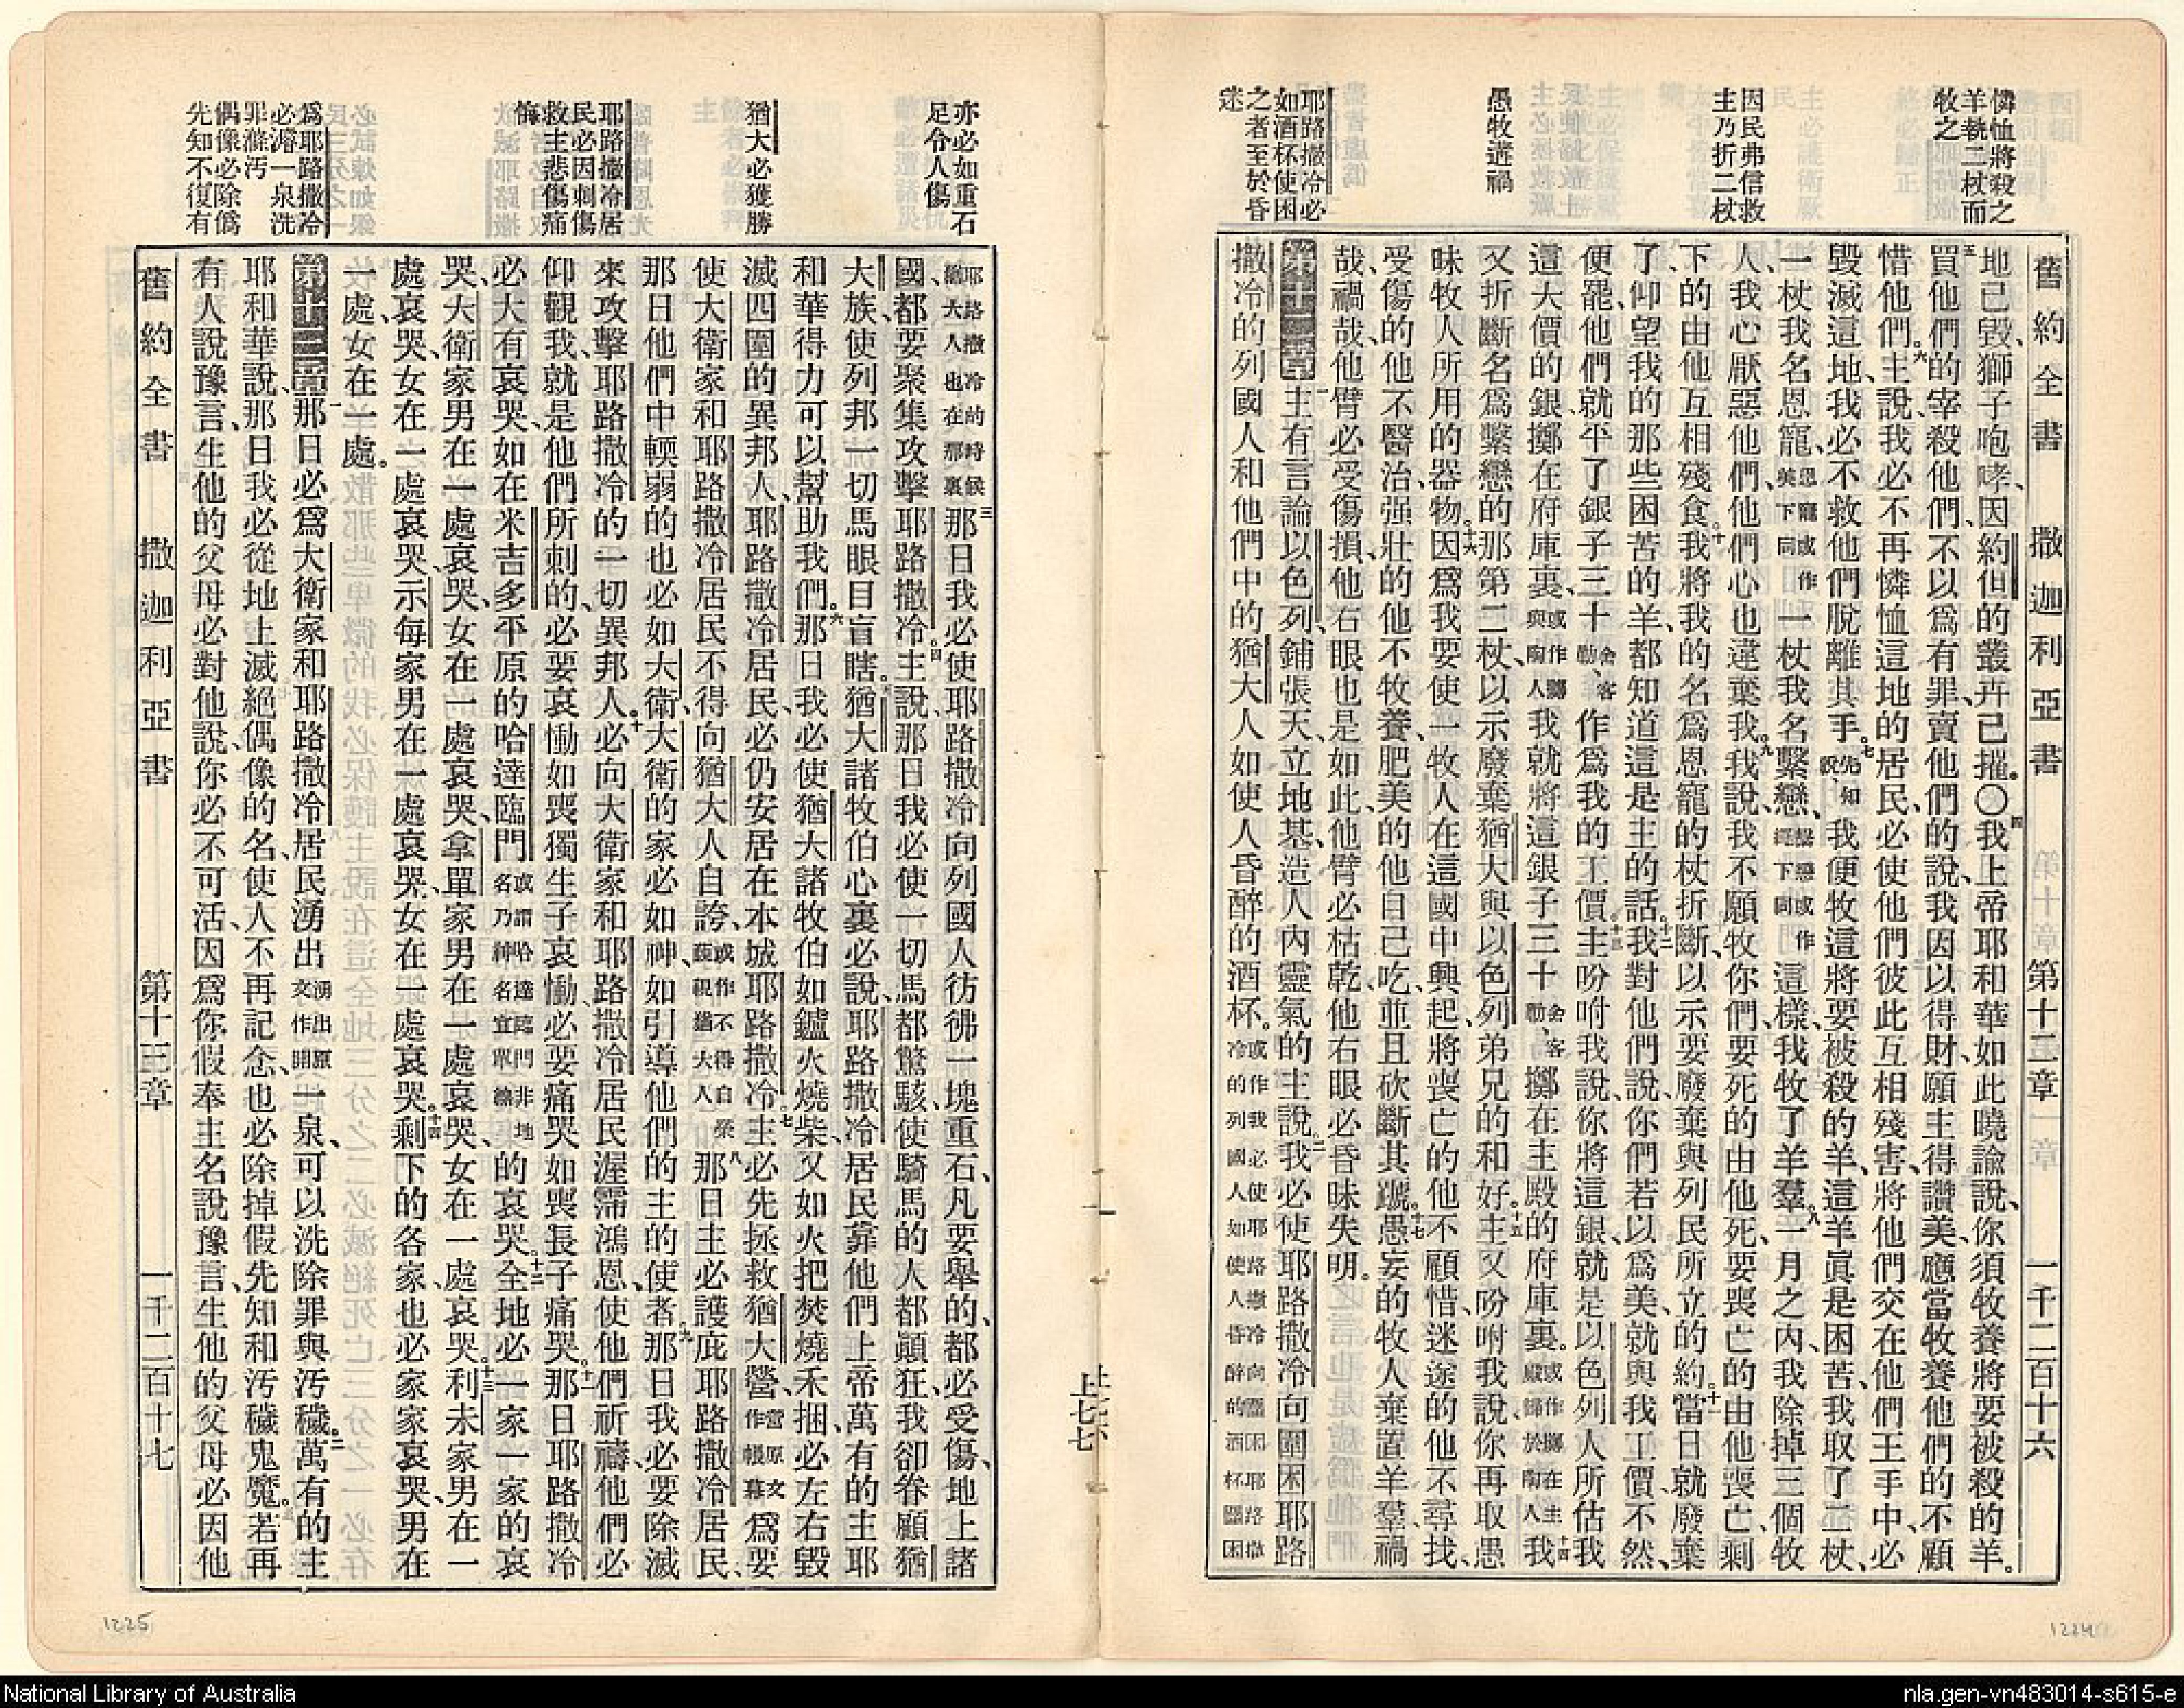 舊約全書 撒迦利亞書 第十二章 一千二百十六
憐恤將殺之
羊執二杖而
牧之
因民弗信救
主乃折二杖
愚牧遘禍
耶路撒冷必
如酒杯使困
之者至於昏
迷
地已毀、獅子咆哮、因約但的叢卉已摧。○四我上帝耶和華如此曉諭說、你須牧養將要被殺的羊。
五買他們的宰殺他們、不以爲有罪、賣他們的說、我因以得財、願主得讚美、應當牧養他們的不顧
惜他們。六主說、我必不再憐恤這地的居民、必使他們彼此互相殘害、將他們交在他們王手中、必
毀滅這地、我必不救他們脫離其手。七先知說、我便牧這將要被殺的羊、這羊眞是困苦、我取了二杖、
一杖我名恩寵、恩寵或作美下同一杖我名繫戀、繫戀或作繩下同這樣我牧了羊羣。八一月之內、我除掉三個牧
人、我心厭惡他們、他們心也違棄我。九我說、我不願牧你們、要死的由他死、要喪亡的由他喪亡、剩
下的由他互相殘食。十我將我的名爲恩寵的杖折斷、以示要廢棄與列民所立的約。十一當日就廢棄
了、仰望我的那些困苦的羊、都知道這是主的話。十二我對他們說、你們若以爲美、就與我工價、不然、
便罷、他們就平了銀子三十舍客勒、作爲我的工價。十三主吩咐我說、你將這銀、就是以色列人所估我
這大價的銀、擲在府庫裏、或作擲與陶人我就將這銀子三十舍客勒、擲在主殿的府庫裏。或作擲在主殿歸於陶人十四我
又折斷名爲繫戀的那第二杖、以示廢棄猶大與以色列弟兄的和好。十五主又吩咐我說、你再取愚
昧牧人所用的器物。十六因爲我要使一牧人在這國中興起、將喪亡的他不顧惜、迷途的他不尋找、
受傷的他不醫治、强壯的他不牧養、肥美的他自己吃、並且砍斷其蹏。十七愚妄的牧人棄置羊羣、禍
哉、禍哉、他臂必受傷損、他右眼也是如此、他臂必枯乾、他右眼必昏昧失明。
第十二章一主有言論以色列、鋪張天、立地基、造人內靈氣的主說、二我必使耶路撒冷向圍困耶路
撒冷的列國人、和他們中的猶大人、如使人昏醉的酒杯。或作我必使耶路撒冷向圍困耶路撒冷的列國人如使人昏醉的酒杯圍困
上七六
上七七
亦必如重石
足令人傷
猶大必獲勝
耶路撒冷居
民必因刺傷
救主悲傷痛
悔
爲耶路撒冷
必濬一泉洗
罪滌污
偶像必除僞
先知不復有
耶路撒冷的時候猶大人也在那裏三那日我必使耶路撒冷向列國人彷彿一塊重石、凡要舉的、都必受傷、地上諸
國、都要聚集攻擊耶路撒冷。四主說、那日我必使一切馬都驚駭、使騎馬的人都顚狂、我卻眷顧猶
大族、使列邦一切馬眼目盲瞎。五猶大諸牧伯心裏必說、耶路撒冷居民靠他們上帝萬有的主耶
和華得力、可以幫助我們。六那日我必使猶大諸牧伯如鑪火燒柴、又如火把焚燒禾捆、必左右毀
滅四圍的異邦人、耶路撒冷居民、必仍安居在本城耶路撒冷。七主必先拯救猶大營、營原文作帳幕爲要
使大衛家和耶路撒冷居民不得向猶大人自誇、或作不得自榮藐視猶大人八那日主必護庇耶路撒冷居民、
那日他們中輭弱的也必如大衛、大衛的家必如神、如引導他們的主的使者。九那日我必要除滅
來攻擊耶路撒冷的一切異邦人。十必向大衛家和耶路撒冷居民渥霈鴻恩、使他們祈禱、他們必
仰觀我、就是他們所刺的、必要哀慟、如喪獨生子哀慟、必要痛哭、如喪長子痛哭。十一那日耶路撒冷
必大有哀哭、如在米吉多平原的哈達臨門或謂哈達臨門非地名乃神名宜單繙的哀哭。十二全地必一家一家的哀
哭、大衛家男在一處哀哭、女在一處哀哭、拿單家男在一處哀哭、女在一處哀哭。十三利未家男在一
處哀哭、女在一處哀哭、示每家男在一處哀哭、女在一處哀哭。十四剩下的各家、也必家家哀哭、男在
一處、女在一處。
第十三章一那日必爲大衛家和耶路撒冷居民湧出湧出原文作開一泉、可以洗除罪與污穢。二萬有的主
耶和華說、那日我必從地上滅絕偶像的名、使人不再記念、也必除掉假先知和污穢鬼魔。三若再
有人說豫言、生他的父母必對他說、你必不可活、因爲你假奉主名說豫言、生他的父母必因他
舊約全書 撒迦利亞書 第十三章 一千二百十七
1225
1224
National Library of Australia
nla.gen-vn483014-s615-e